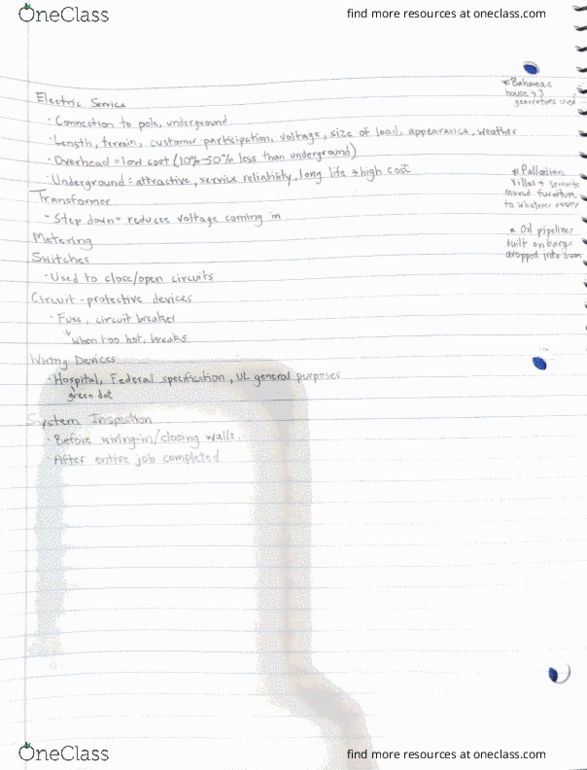 OneClass
find more resources at oneclass.com
* Bahamas
house →
generators used
Electric Service
· Connection to pole, underground
· Length, terrain, customer participation, voltage, size of load, appearance, weather
· Overhead = low cost (10%-50% less than underground)
· Underground = attractive, service reliability, long life → high cost
* Palladian
Villas → servants
moved furniture
to whatever room
Transformer
- Step down = reduces voltage coming in
Metering
* Oil pipelines
built on barge
dropped into
Switches
· Used to close/open circuits
Circuit-protective devices
· Fuse, circuit breaker
when too hot, breaks
Wiring Devices
· Hospital, Federal specification, UL general purposes
green dot
System Inspection
· Before wiring-in/closing walls
· After entire job completed
OneClass
find more resources at oneclass.com